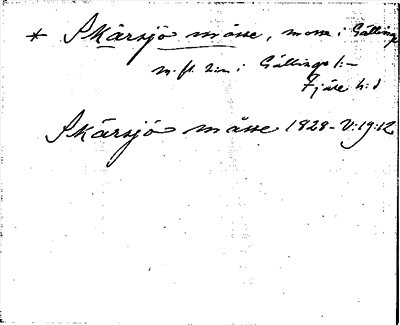 * Skärsjö måsse, mosse i Gällinge
m. fl. i Gällinge s:n
Fjäre h:d
Skärsjö måsse 1828- V:19:12